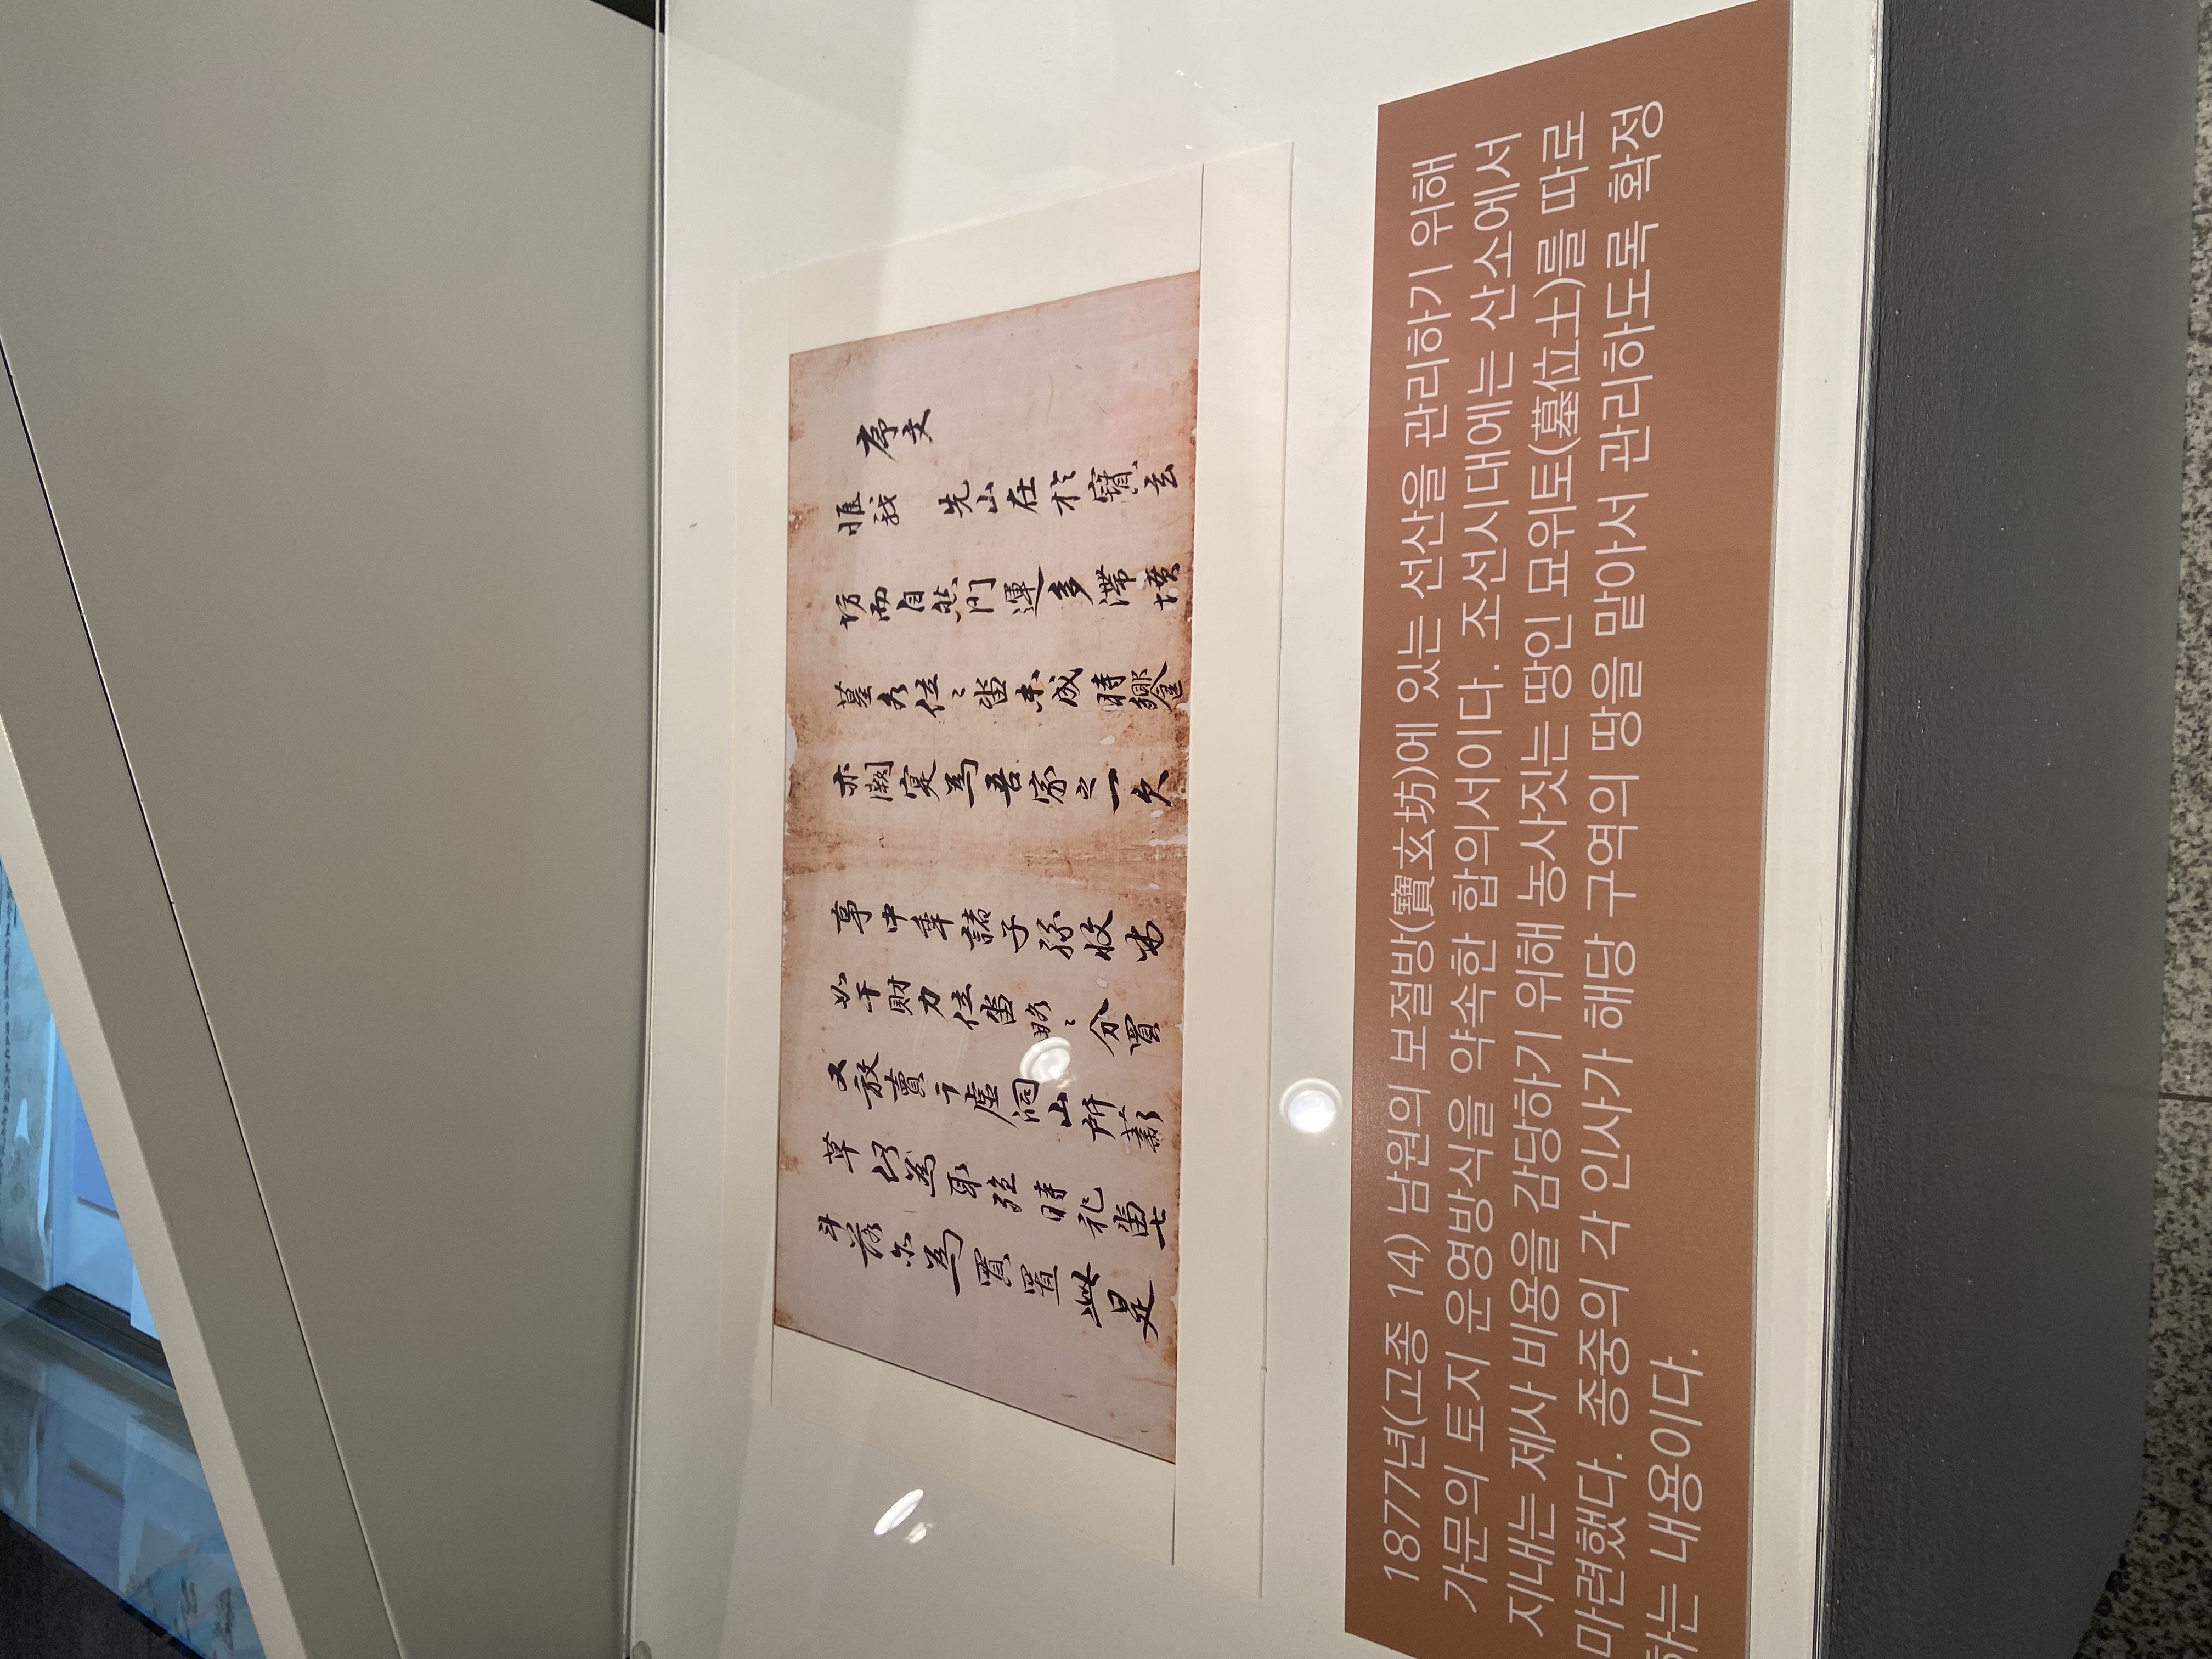 序文
惟我 先山在於寶玄
坊而自然門運多滯墳
墓各位〻畓未成時饗
亦闕寔爲吾家之一欠
事中年諸子孫收
如干財力位畓略〻分買
又放賣于虛洞山所薪
草價爲取殖時祀畓七
斗落尒爲買置此是
1877년(고종 14) 남원의 보절방(寶玄坊)에 있는 선산을 관리하기 위해
가문의 토지 운영방식을 약속한 합의서이다. 조선시대에는 산소에서
지내는 제사 비용을 감당하기 위해 농사짓는 땅인 묘위토(墓位土)를 따로
마련했다. 종중의 각 인사가 해당 구역의 땅을 맡아서 관리하도록 확정
하는 내용이다.